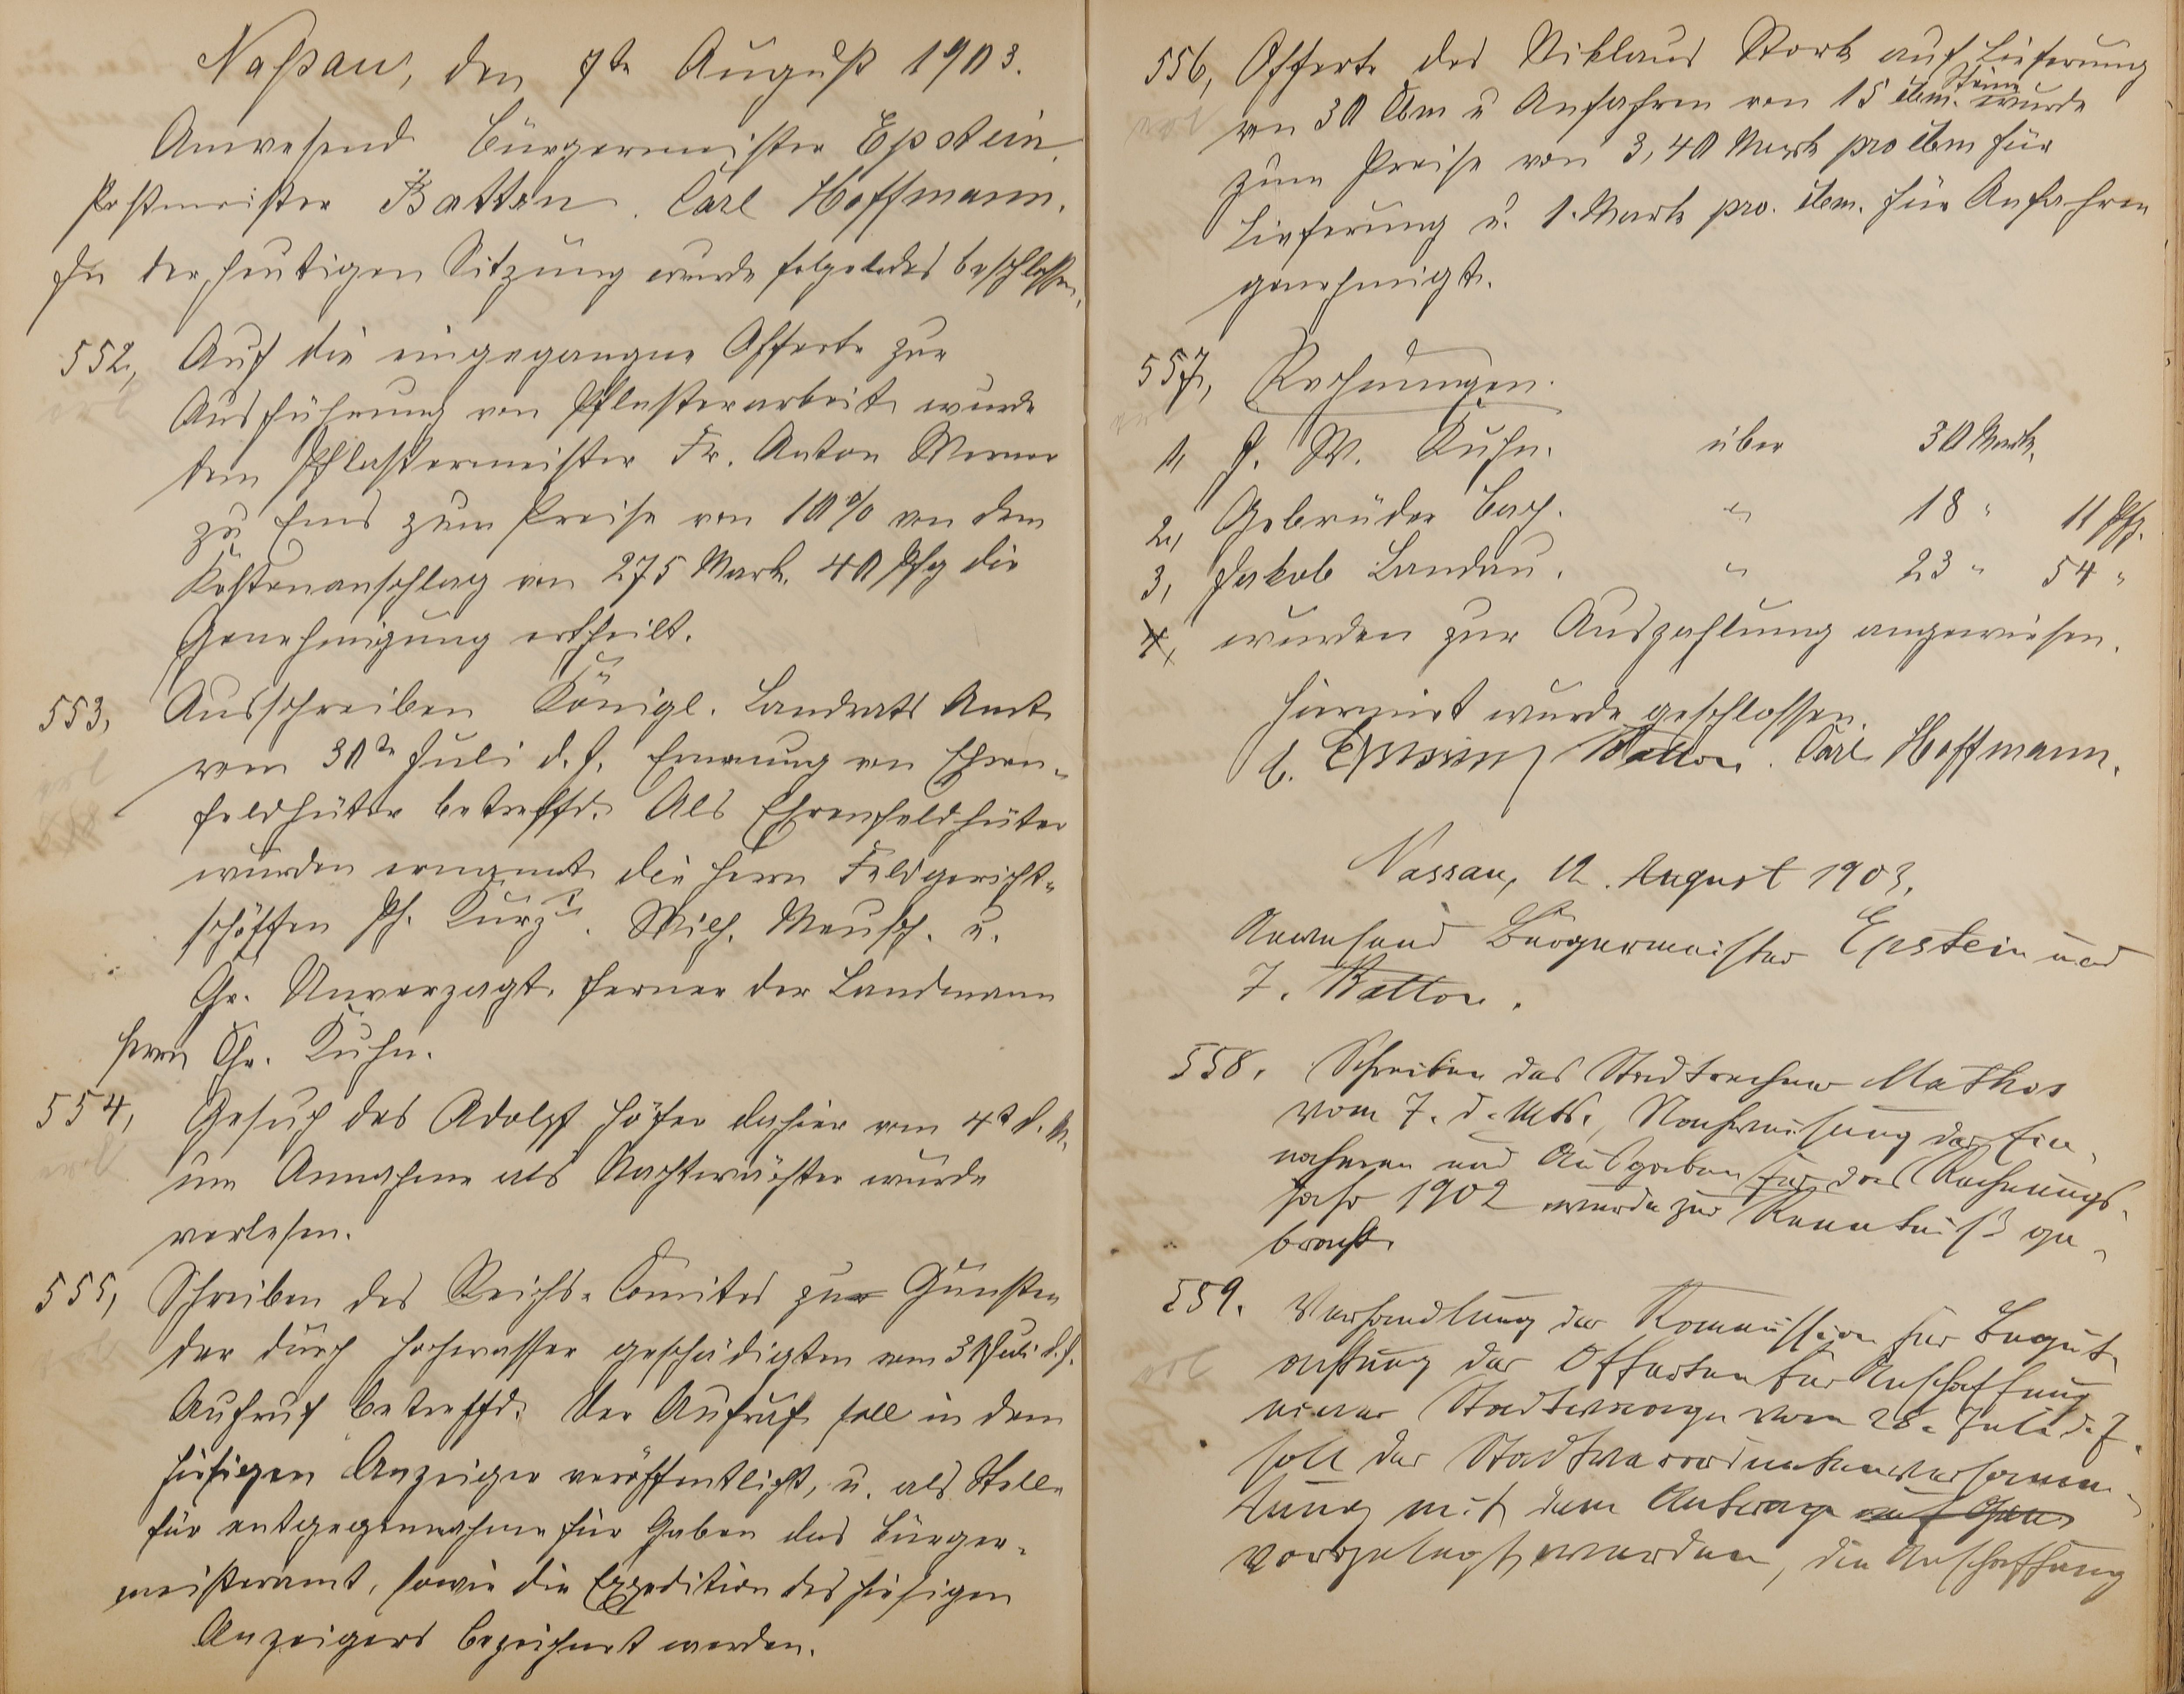 Naßau, den 7te August 1903.
Anwesend Bürgermeister Epstein.
Postmeister Batton. Carl Hoffmann.
In der heutigen Sitzung wurde folgendes beschlossen,
552, Auf die eingegangne Offerte zur
Ausführung von Pflasterarbeit wurde
dem Pflastermeister Fr. Anton Werner
zu Ems zum Preise von 10% von dem
Kostenanschlag von 275 Mark. 40 Pfg die
Genehmigung ertheilt.
553, Ausschreiben Königl. Landrats Amt
vom 30te Juli d. J. Ernennung von Ehren-
feldhüter betreffd. Als Ehrenfeldhüter
wurden ernannt die Herrn Feldgericht-
schöffen Ph. Kurz. Wilh. Meusch. u.
Chr. Unverzagt, ferner der Landmann
Herrn Chr. Kuhn.
554, Gesuch des Adolph Höfer dahier vom 4t d. M.
um Annahme als Nachtwächter wurde
verlesen.
555, Schreiben des Reichs-Comites zur Gunsten
der durch Hochwasser geschädigten vom 31 Juli d. J.
Aufruf betreffd. Der Aufruf soll in dem
hiesigen Anzeiger veröffentlicht, u. als Stelle
für entgegennahme für Gaben das Bürger-
meisteramt, sowie die Expedition des hiesigen
Anzeigers bezeichnet werden.
556, Offerte des Niklaus Stork auf Lieferung
von 30 Cbm u Anfahren von 15 cbm. Steine wurde
zum Preise von 3,40 Mark pro cbm für
Lieferung u. 1. Mark pro. cbm. für Anfahren
genehmigt.
557, Rechnungen.
1, J. W. Kuhn. über 30 Mark,
2, Gebrüder Bach. " 18 " 11 Pfg.
3, Jakob Landau. " 23 " 54 "
4, wurden zur Auszahlung angewiesen.
Hiermit wurde geschlossen.
Epstein Batton. Carl Hoffmann.
Nassau, 12. August 1903.
Anwesend Bürgermeister Epstein und
F. Batton.
558. Schreiben des Stadtrechner Mathos
vom 7. d. Mts., Nachweisung der Ein-
nahmen und Ausgaben für das Rechnungs-
jahr 1902 wurde zur Kenntniß ge-
bracht.
559. Verhandlung der Kommission für Begut-
achtung der Offerten für Anschaffung
einer Stadtwaage vom 28. Juli d. J.
soll der Stadtverordnetenversamm-
lung mit dem Antrage auf Gen
vorgelegt werden, die Anschaffung